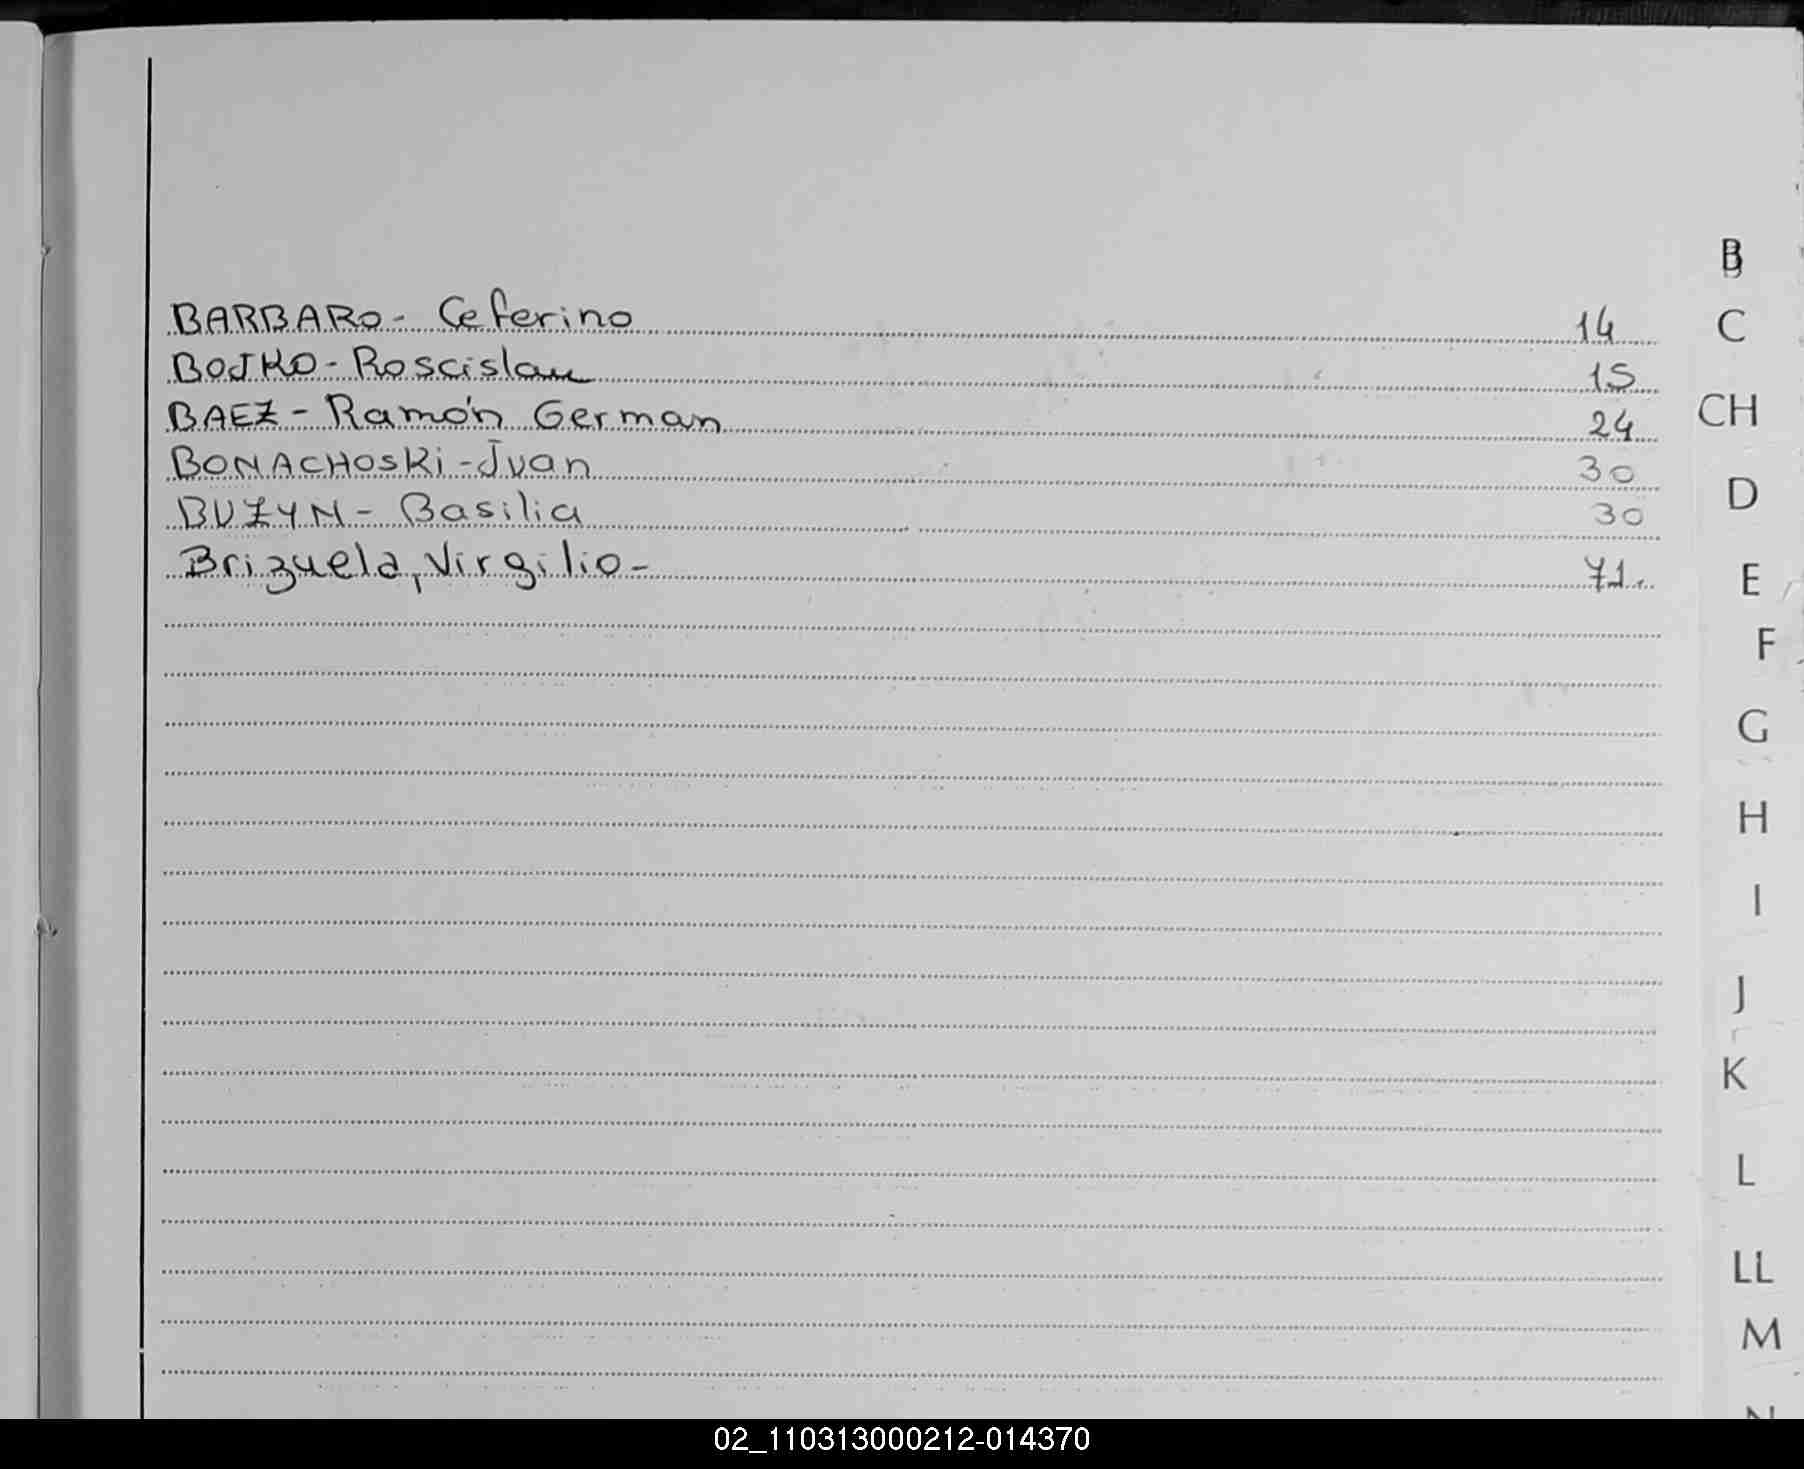 B
BARBARO - Ceferino 14
C
BOJKO - Roscislau 15
BAEZ - Ramón German 24
CH
BONACHOSKi - Juan 30
D
BUZYN - Basilia 30
Brizuela, Virgilio - 71.
E
F
G
H
I
J
K
L
LL
M
N
02_110313000212-014370